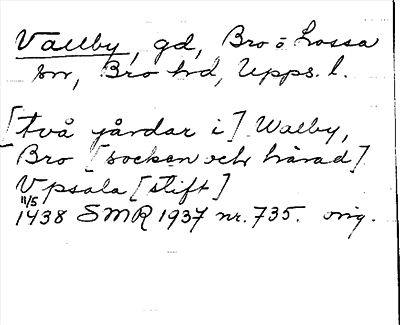 Vallby, gd, Bro o Lossa
sn, Bro hd, Upps. l.
[två gårdar i] Walby,
Bro [socken och härad]
Vpsala [stift]
11/5
1438 SMR 1937 nr. 735. orig.